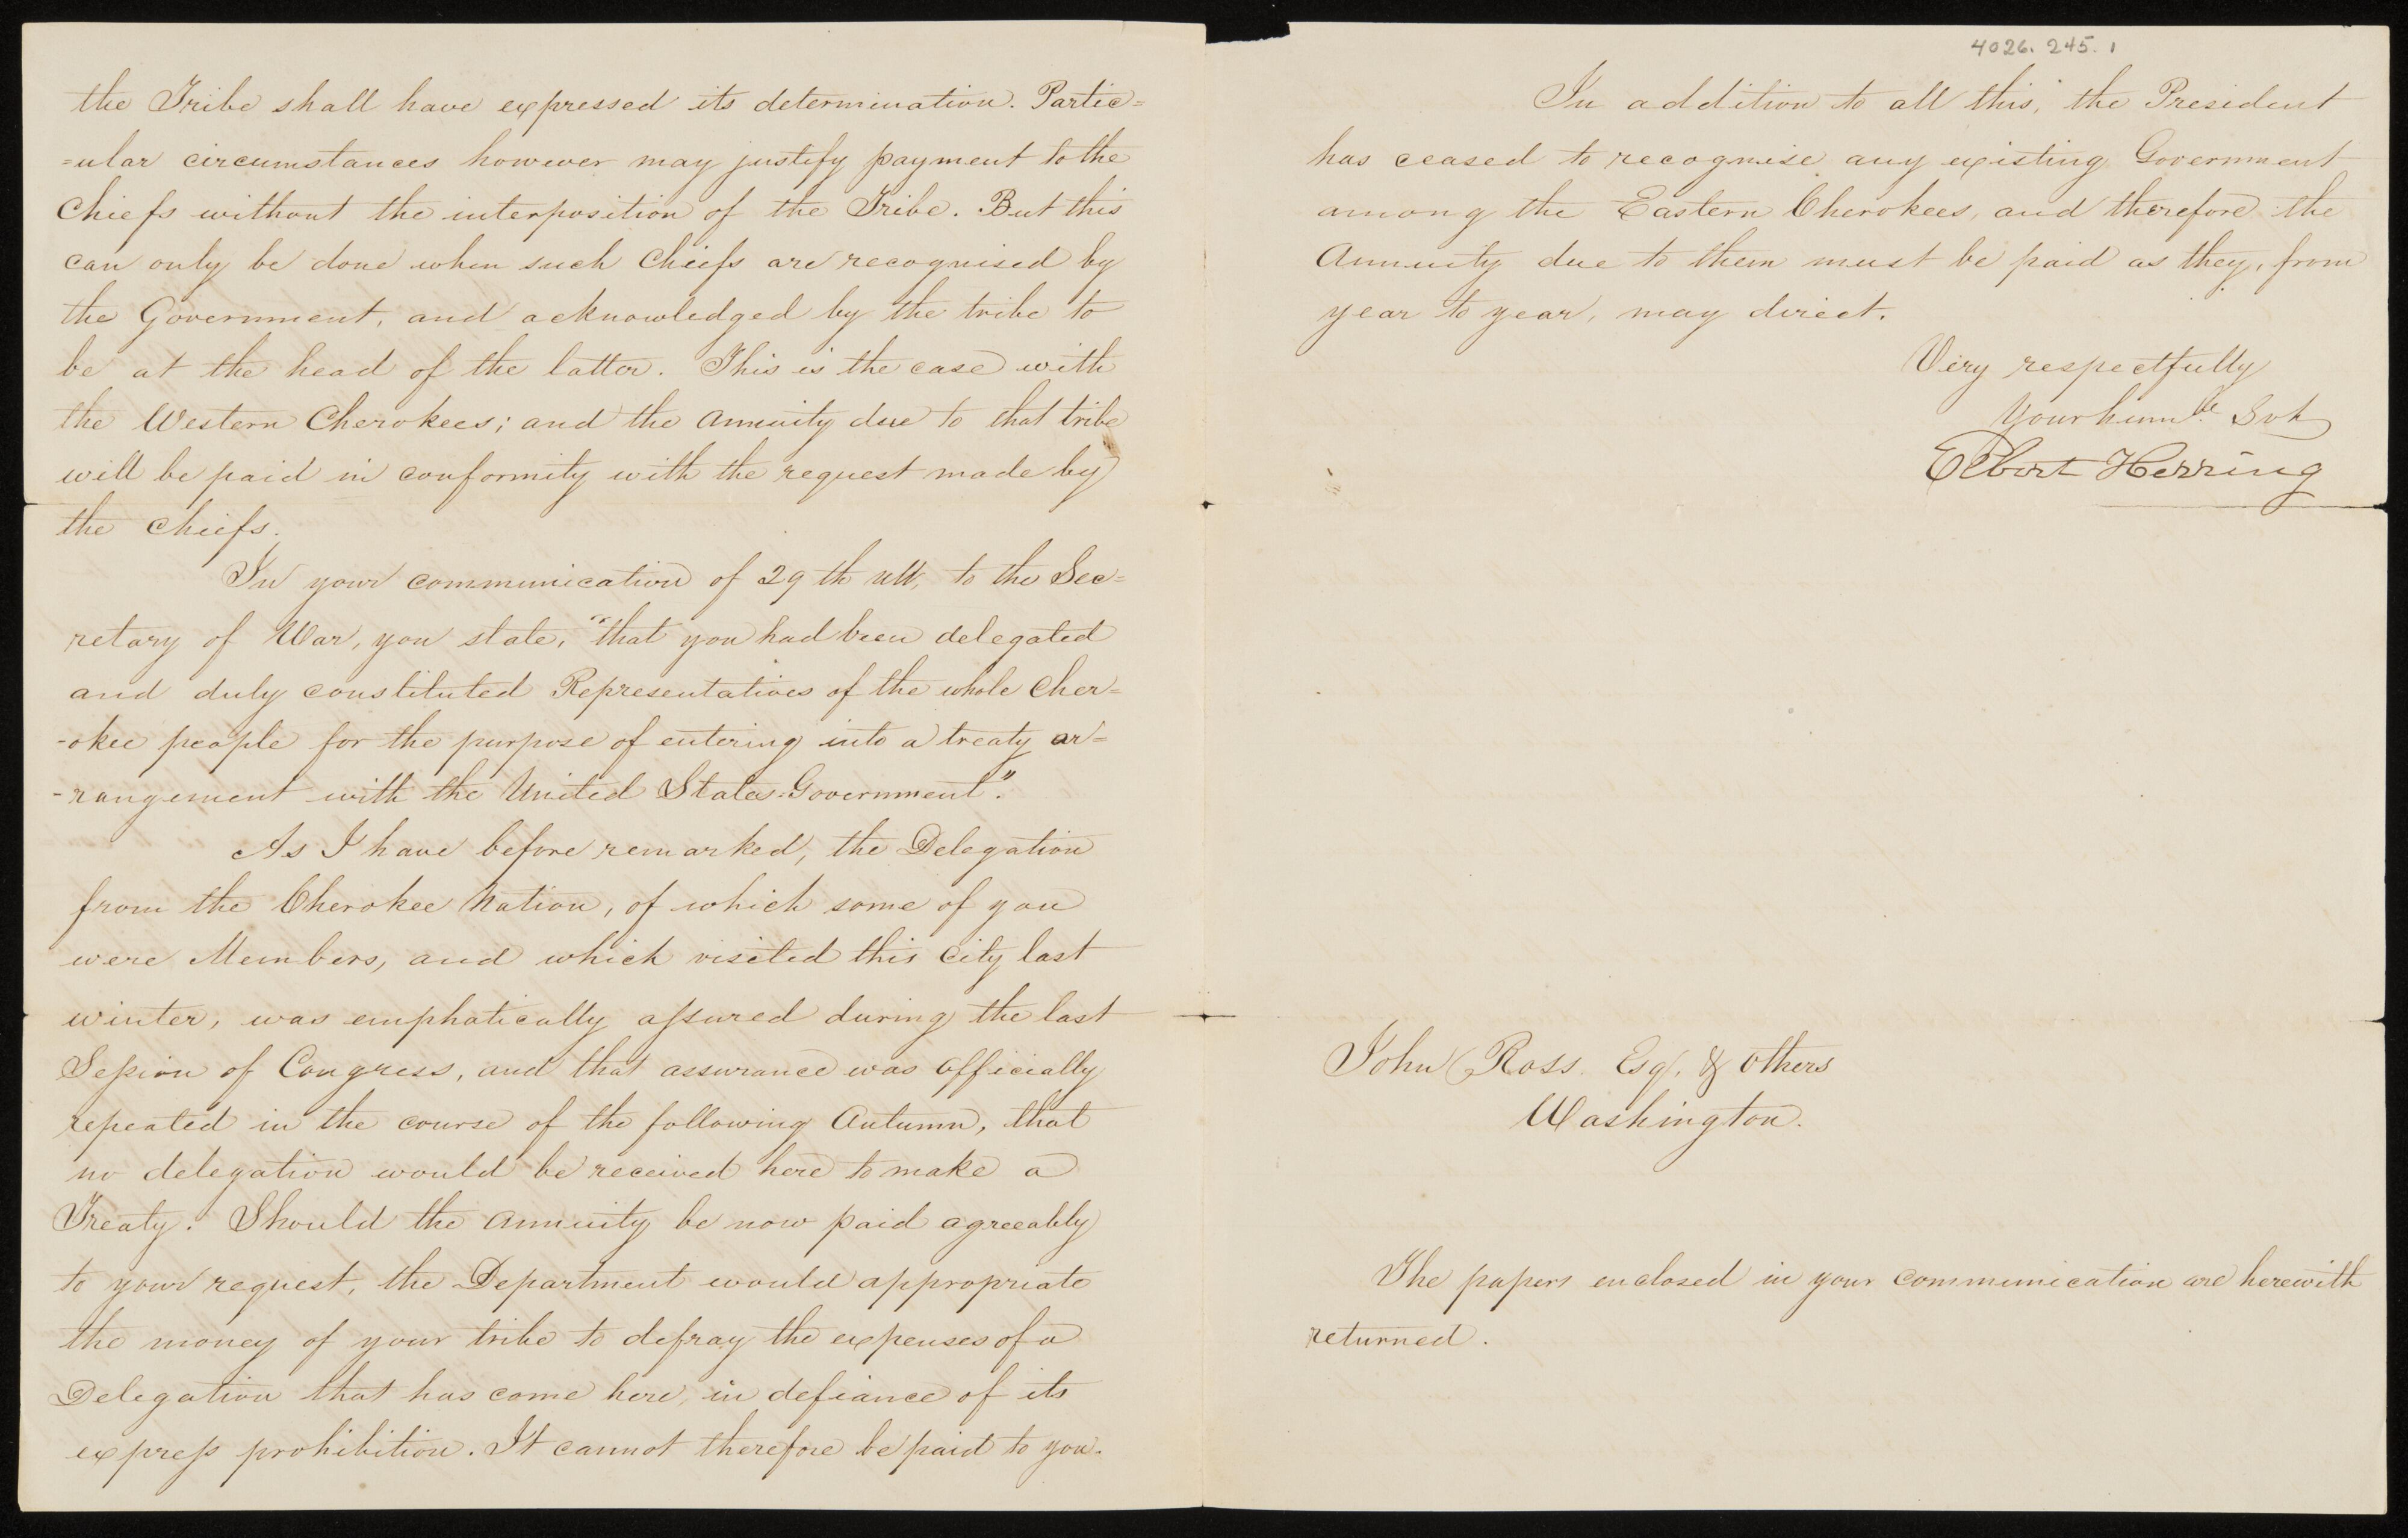 the Tribe shall have expressed its determination. Partic=
=ular circumstances however may justify payment to the
Chiefs without the interposition of the Tribe. But this
can only be done when such Chiefs are recognised by
the Government, and acknowledged by the tribe to
be at the head of the latter. This is the case with
the Western Cherokees; and the Annuity due to that tribe
will be paid in conformity with the request made by
the Chiefs.
In your communication of 29th ult, to the Sec=
retary of War, you state, "that you had been delegated
and duly constituted Representatives of the whole Cher=
-okee people for the purpose of entering into a treaty ar=
-rangement with the United States Government."
As I have before remarked, the Delegation
from the Cherokee Nation, of which some of you
were Members, and which visited this City last
winter, was emphatically assured during the last
Session of Congress, and that assurance was officially
repeated in the course of the following Autumn, that
no delegation would be received here to make a
Treaty. Should the Annuity be now paid agreeably
to your request, the Department would appropriate
the money of your tribe to defray the expenses of a
Delegation that has come here, in defiance of its
express prohibition. It cannot therefore be paid to you.
4026. 245. 1
In addition to all this, the President
has ceased to recognise any existing Government
among the Eastern Cherokees, and therefore the
Annuity due to them must be paid as they, from
year to year, may direct.
Very respectfully
Your humble Svt
Elbert Herring
John Ross Esq. & others
Washington.
The papers enclosed in your communication are herewith
returned.